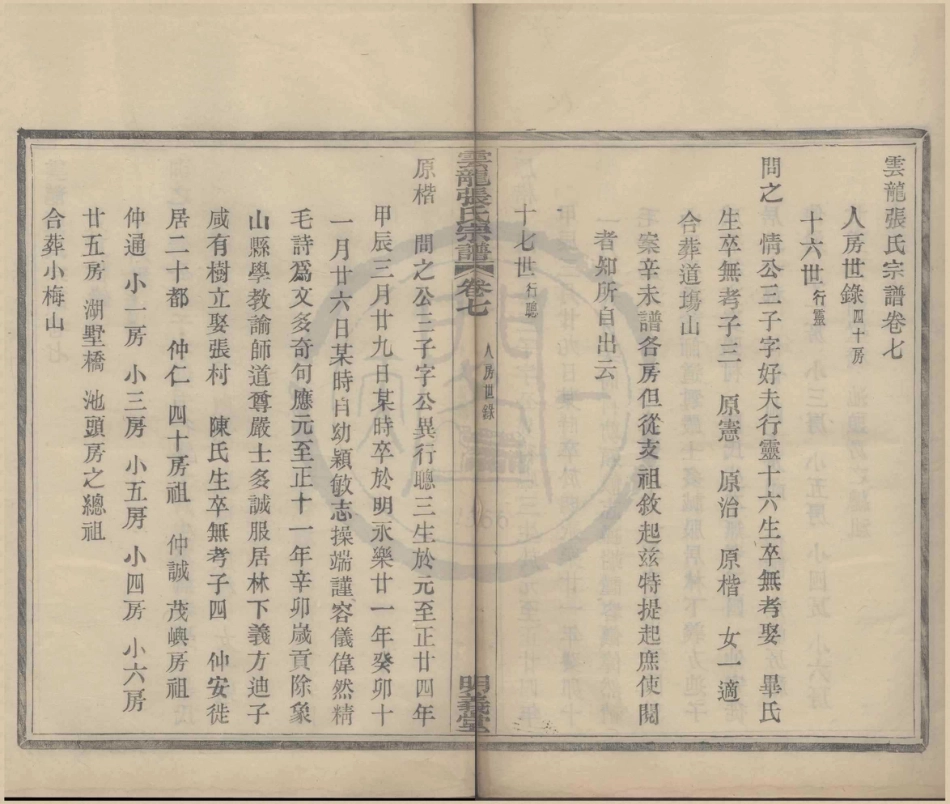 雲龍張氏宗譜卷七
人房世錄四十房
十六世行靈
問之 情公三子字好夫行靈十六生卒無考娶 畢氏
生卒無考子三 原憲 原治 原楷 女一適
合葬道塲山
案辛未譜各房但從亥祖敘起茲特提起庶使閱
者知所自出云
十七世行聰
雲龍張氏宗譜 卷七 人房世錄 明義堂
原楷 問之公三子字公異行聰三生於元至正廿四年
甲辰三月廿九日某時卒於明永樂廿一年癸卯十
一月廿六日某時自幼穎敏志操端謹容儀偉然精
毛詩爲文多奇句應元至正十一年辛卯歲貢除象
山縣學教諭師道尊嚴士多誠服居林下義方迪子
咸有樹立娶張村 陳氏生卒無考子四 仲安徙
居二十都 仲仁 四十房祖 仲誠 茂嶼房祖
仲通 小一房 小三房 小五房 小四房 小六房
廿五房 湖墅橋 池頭房之總祖
合葬小梅山